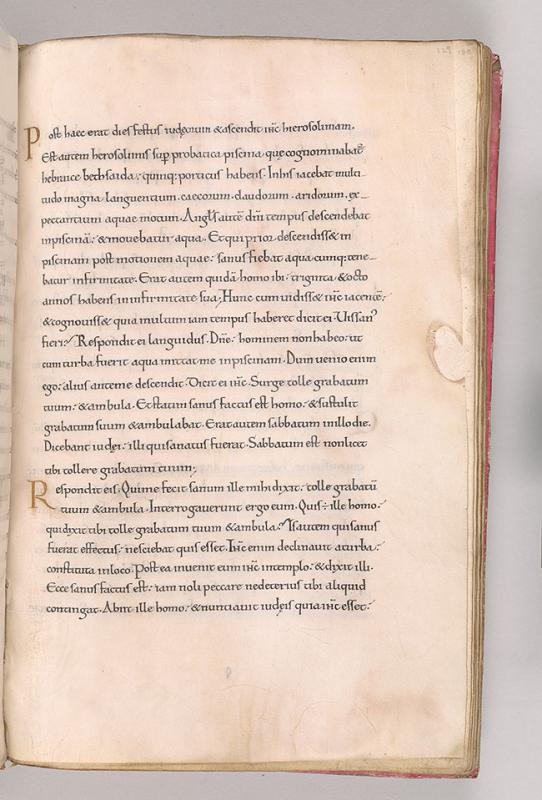 129 130
Post haec erat dies festus iudęorum & ascendit ihc hierosolimam.
Est autem hierosolimis sup probatica piscina. quę cognominabat̄
hebraice bethsaida. quinq; porticus habens. In his iacebat multi
tudo magna languentium. caecorum. claudorum. aridorum. ex_
pectantium aquae motum. Angl's autē dn̄i tempus descendebat
in piscinā. & mouebatur aqua. Et qui prior descendiss& in
piscinam post motionem aquae. sanus fiebat a quacumq; tene_
batur infirmitate. Erat autem quidā homo ibi. triginta & octo
annos habens in infirmitate sua. Hunc cum uidiss& ihc iacentē.
& cognouiss& quia multum iam tempus haberet dicit ei. Uis san'
fieri? Respondit ei languidus. Dn̄e. hominem non habeo. ut
cum turba fuerit aqua mittat me in piscinam. Dum uenio enim
ego. alius ante me descendit. Dicit ei ihc. Surge tolle grabatum
tuum. & ambula. Et statim sanus factus est homo. & sustulit
grabatum suum & ambulabat. Erat autem sabbatum in illo die.
Dicebant iudęi. illi qui sanatus fuerat. Sabbatum est non licet
tibi tollere grabatum tuum;
Respondit eis. Qui me fecit sanum ille mihi dixit. tolle grabatū
tuum & ambula. Interrogauerunt ergo eum. Quis ÷ ille homo.
qui dixit tibi tolle grabatum tuum & ambula? Is autem qui sanus
fuerat effectus. nesciebat quis esset. Ihc enim declinauit a turba.
constituta in loco. Post ea inuenit eum ihc in templo. & dixit illi.
Ecce sanus factus est. iam noli peccare ne deterius tibi aliquid
contingat. Abiit ille homo. & nuntiauit iudęis quia ihc esset.